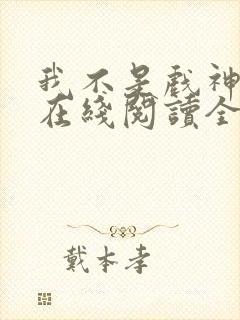 我不是戲神
在綫閱讀全
戴本孝